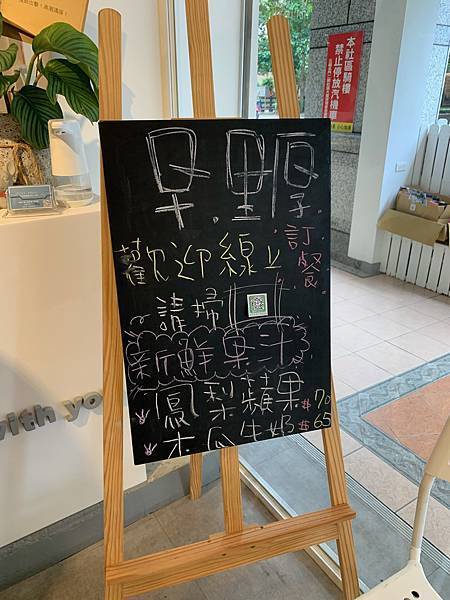 早.野厚.
歡迎線上訂餐
請掃
新鮮果汁
鳳梨蘋果 #70
木瓜牛奶 #65
本社區騎樓
禁止停放汽機車
with yo